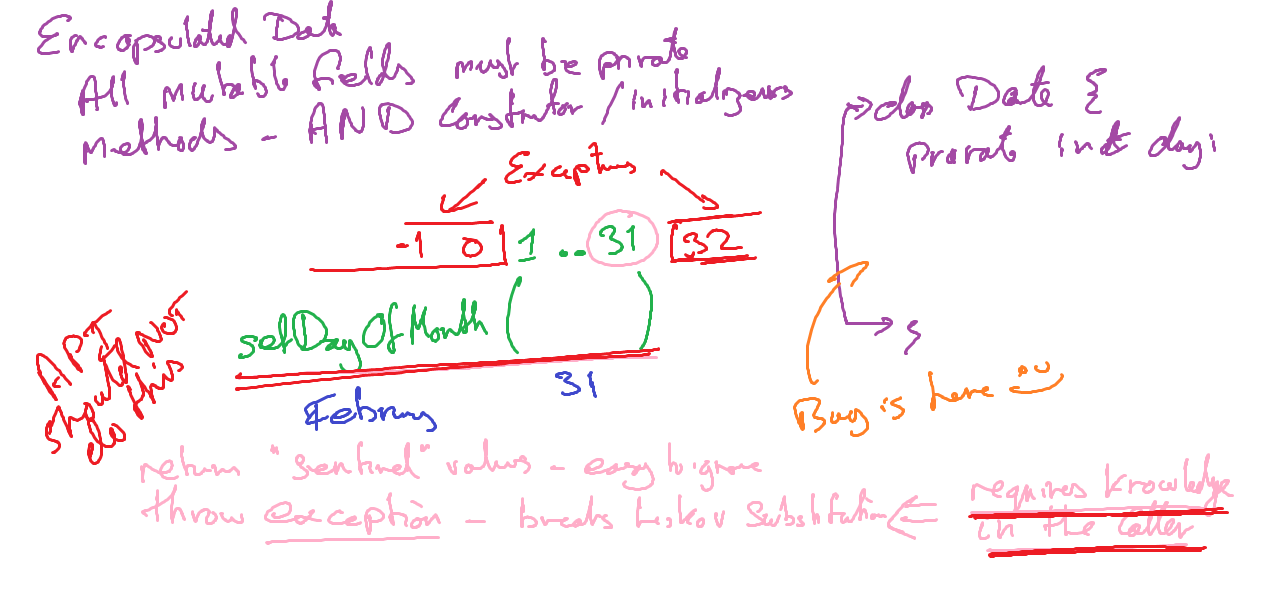 Encapsulated Data
All mutable fields must be private
methods - AND Constructor / initializers
class Date {
private int day;
}
Exceptions
-1 0 1 .. 31 32
setDayOfMonth ( )
February 31
API
should NOT
do this
Bug is here
return "sentinel" values - easy to ignore
throw exception - breaks Liskov Substitution <= requires knowledge
in the caller